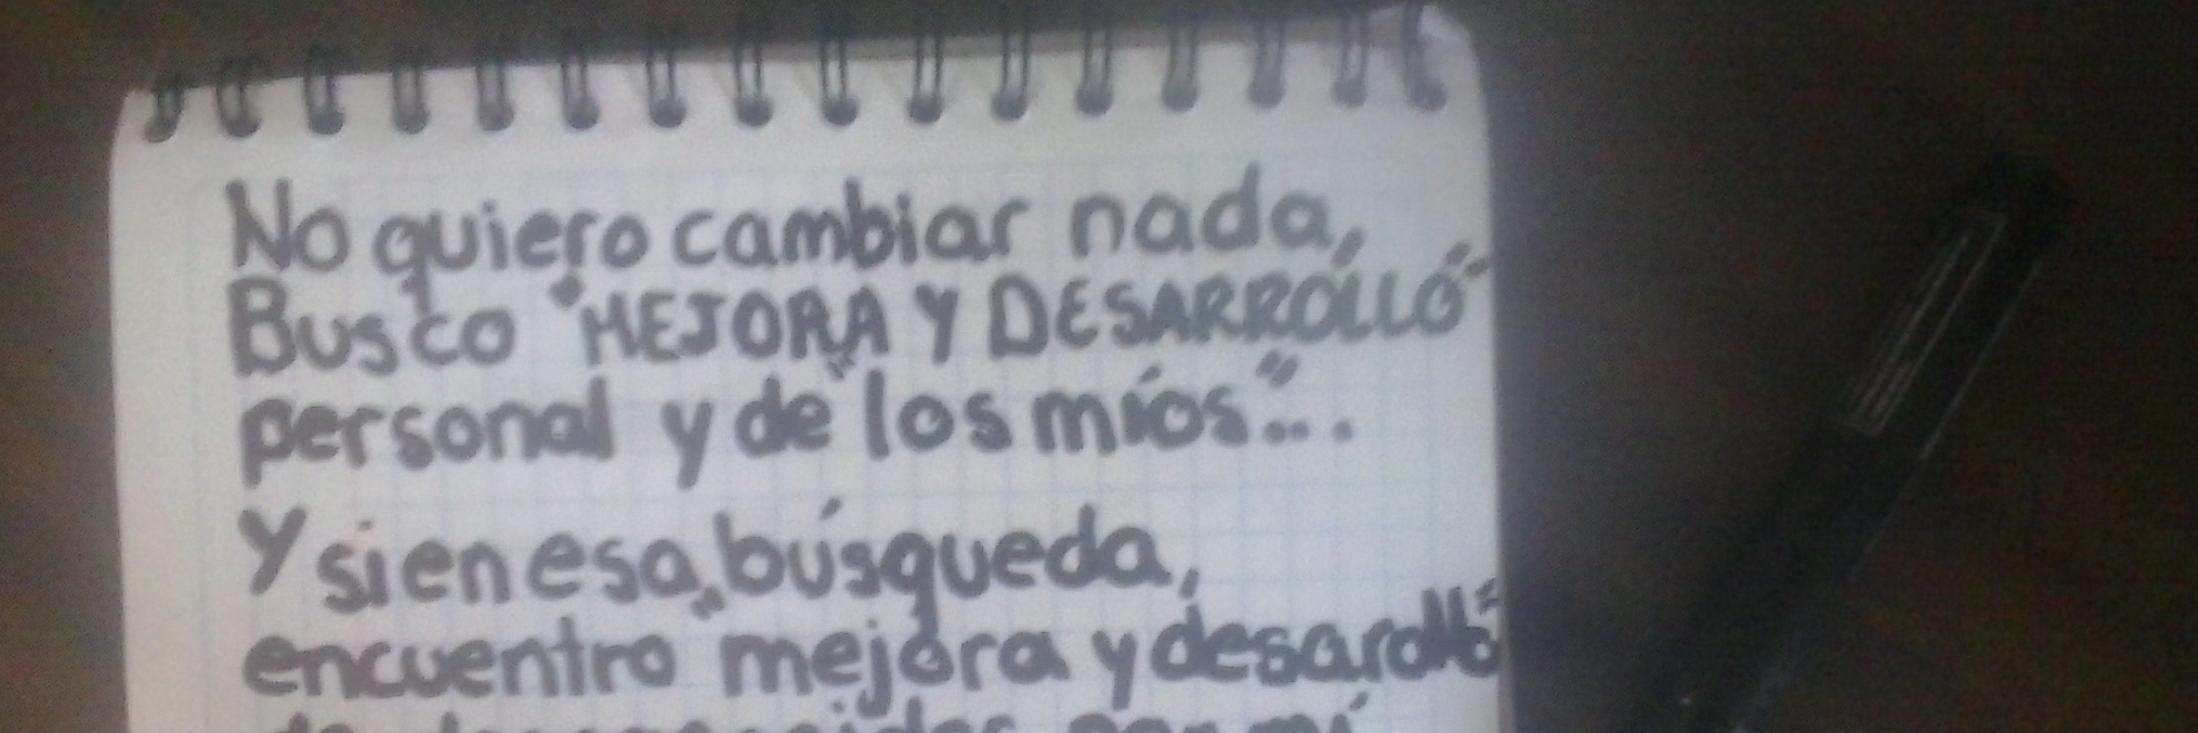 No quiero cambiar nada,
Busco "MEJORA Y DESARROLLO"
personal y de "los míos"...
Y si en esa búsqueda,
encuentro "mejora y desarollo"
de desconocidos por mí